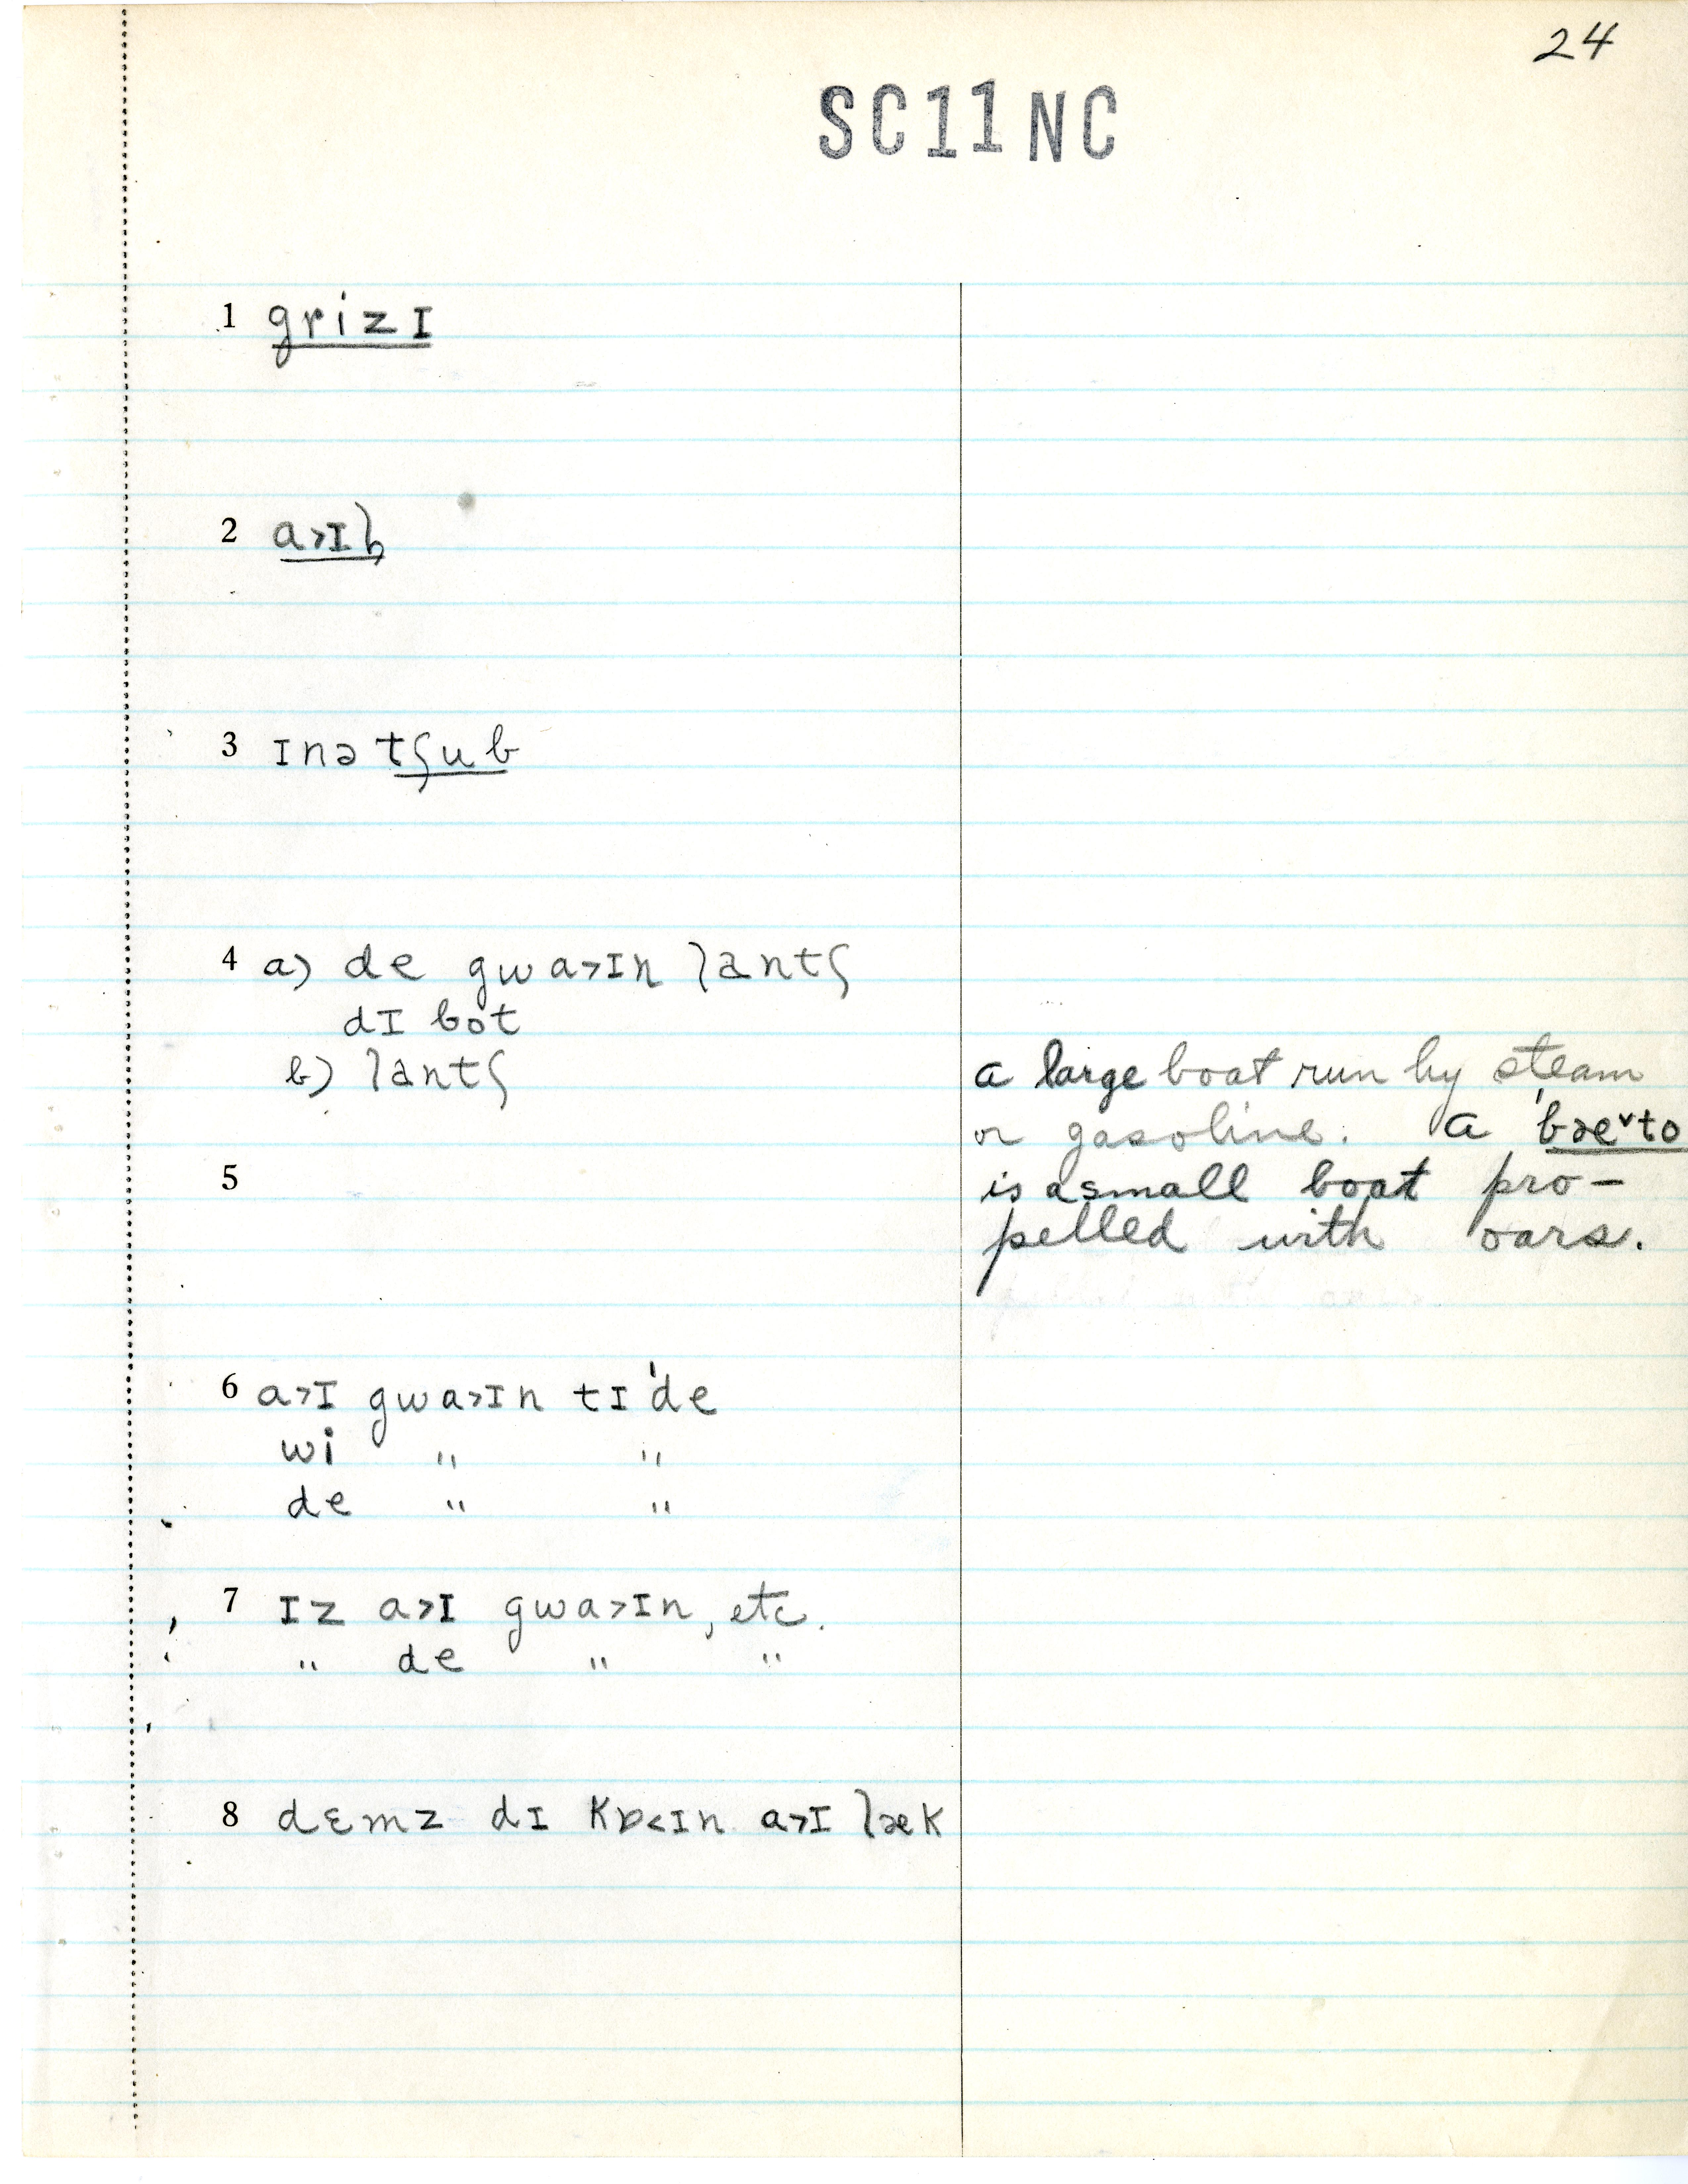 24
SC11NC
1 grizɪ
2 a˃ɪl̡
3 ɪnətʃub
4 a) de gwa˃ɪn lantʃ
dɪ bot
b) lantʃ
a large boat run by steam
or gasoline. A 'bæ˅to
5
is a small boat pro-
pelled with oars.
6 a˃ɪ gwa˃ɪn tɪ'de
wi " "
de " "
7 ɪz a˃ɪ gwa˃ɪn, etc.
" de " "
8 dɛmz dɪ kɒ˂ɪn a˃ɪ læk